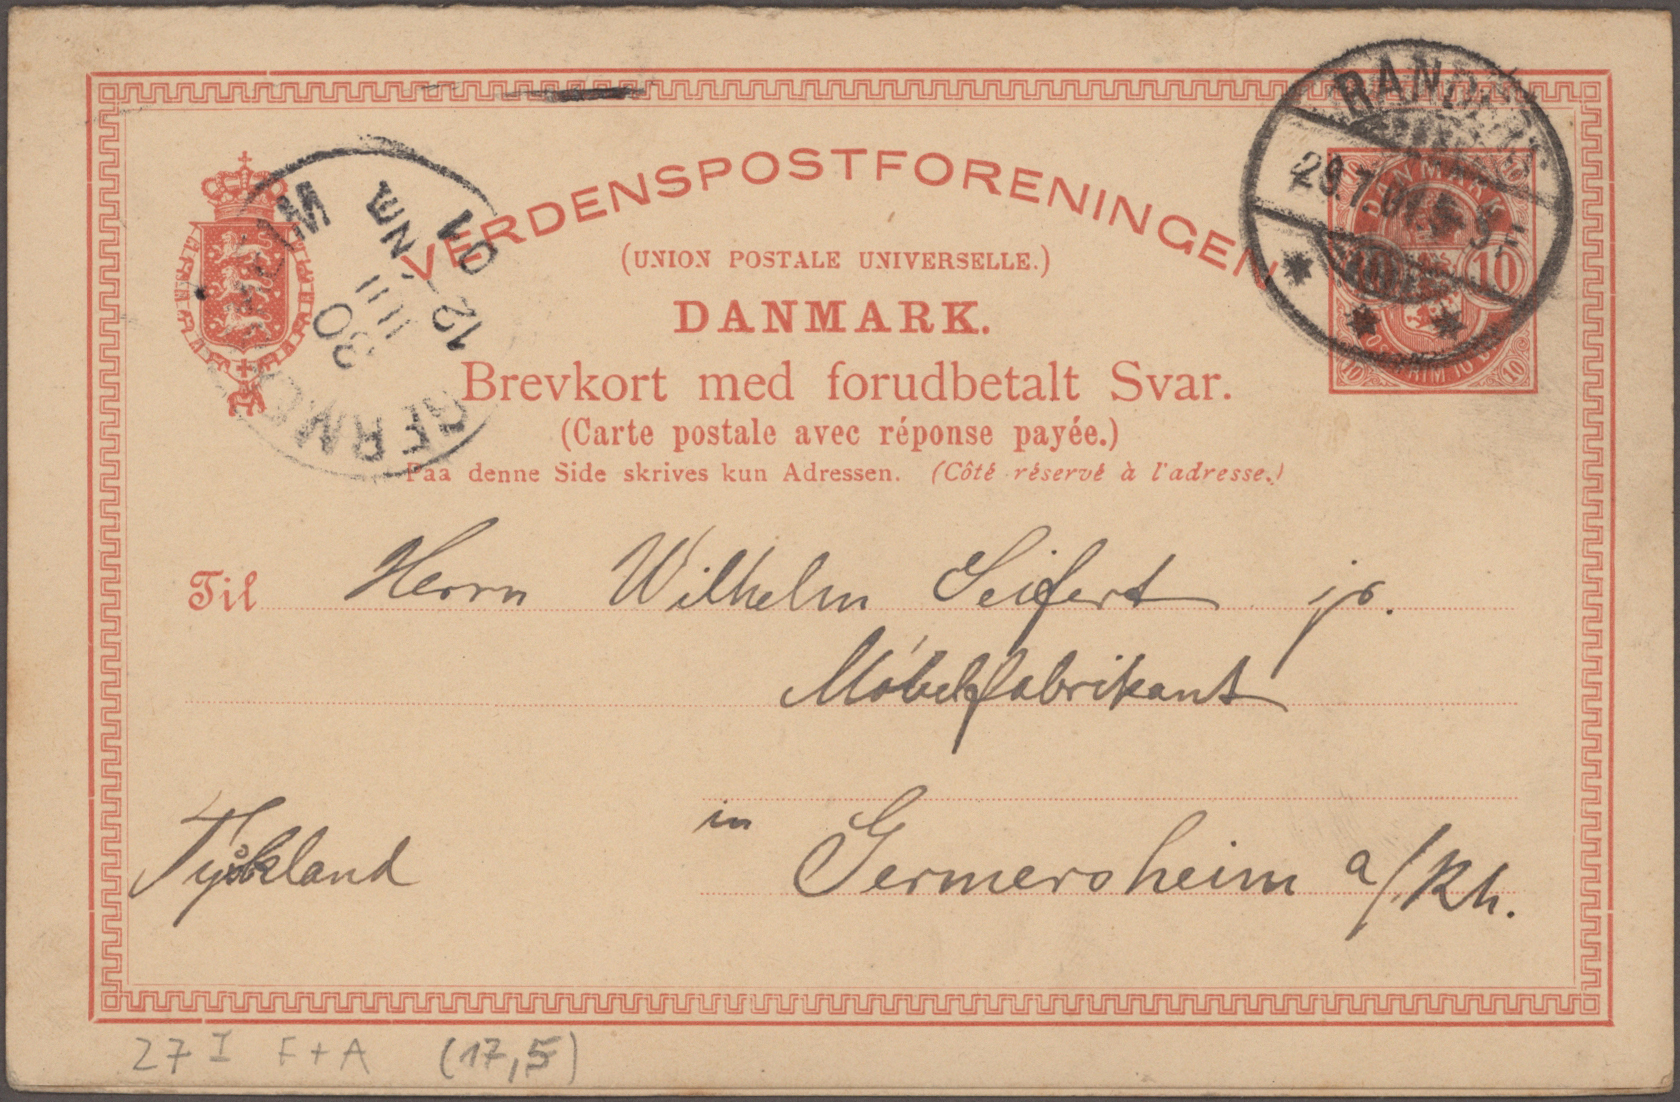 VERDENSPOSTFORENINGEN
(UNION POSTALE UNIVERSELLE.)
DANMARK.
Brevkort med forudbetalt Svar.
(Carte postale avec réponse payée.)
Paa denne Side skrives kun Adressen. (Côté réservé à l'adresse.)
RANDERS
29.7.01
DANMARK
10 10
30
12
01
Til Herrn Wilhelm Seifert jr.
Möbelfabrikant
in Germersheim a/Rh.
Tyskland
27 I F+A (17,5)